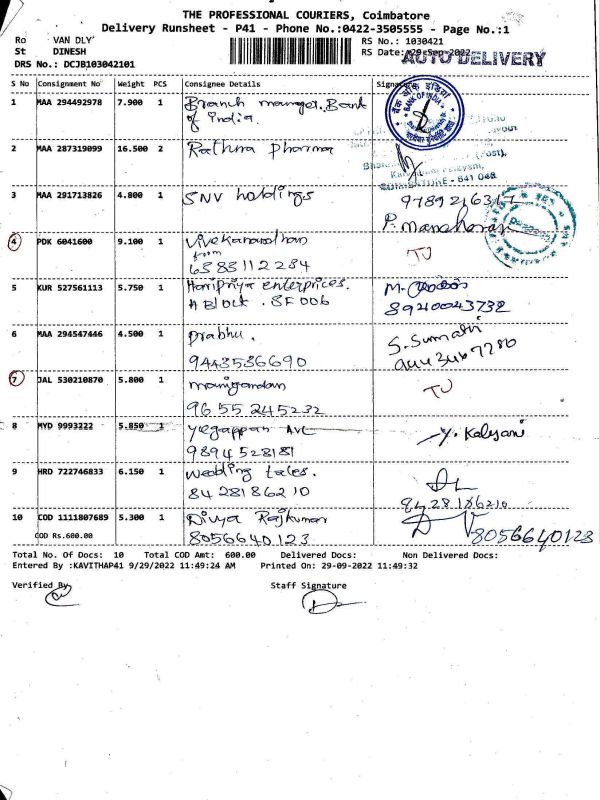 THE PROFESSIONAL COURIERS, Coimbatore
Delivery Runsheet - P41 - Phone No.:0422-3505555 - Page No.:1
Ro VAN DLY
RS No.: 1030421
St DINESH
RS Date: 29-Sep-2022
AUTO DELIVERY
DRS No.: DCJB103042101
S No Consignment No Weight PCS Consignee Details Signature
1 MAA 294492978 7.900 1 Branch manager, Bank
of india.
BANK OF INDIA
2 MAA 287319099 16.500 2 Rathna pharma
COIMBATORE - 641 048
3 MAA 291713826 4.800 1 SNV holdings
P. Manoharan
4 PDK 6041600 9.100 1 Vivekanandhan TU
from
6383112284
5 KUR 527561113 5.750 1 Haripriya enterprices.
A Block . SF 006 8940043732
6 MAA 294547446 4.500 1 prabhu. S. Sumathi
9443536690
7 JAL 530210870 5.800 1 manigandan TU
9655245232
8 MYD 9993222 5.850 1 yegappan AVL Y. Kalyani
9894528181
9 HRD 722746833 6.150 1 wedding tales.
8428186210 9428186210
10 COD 1111807689 5.300 1 Divya Rajkumar
COD Rs.600.00 8056640123 8056640123
Total No. Of Docs: 10 Total COD Amt: 600.00 Delivered Docs: Non Delivered Docs:
Entered By :KAVITHAP41 9/29/2022 11:49:24 AM Printed On: 29-09-2022 11:49:32
Verified By Staff Signature